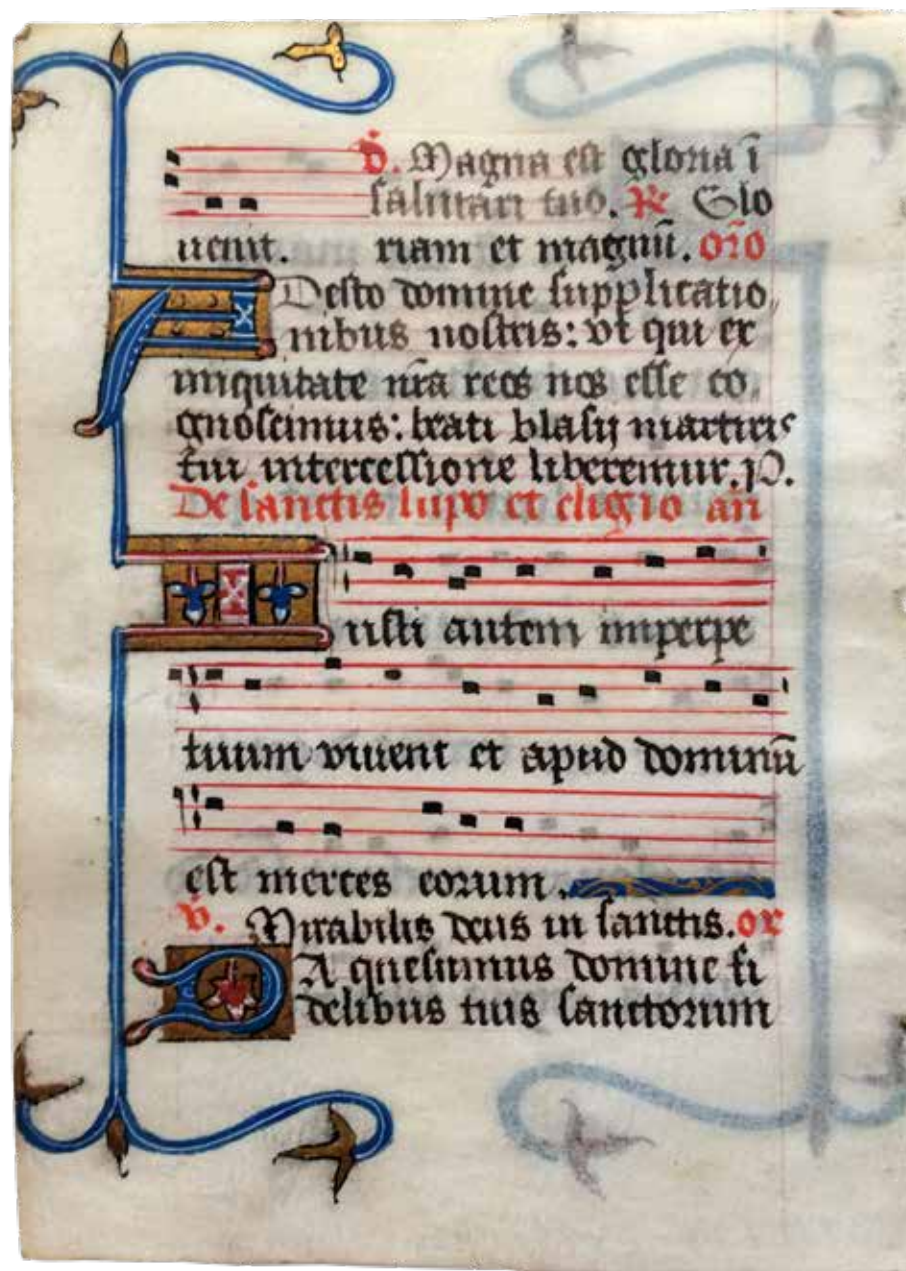 v̄. Magna est gloria ī
salutari tuo. R̄ Glo
uenit. riam et magnū. oīo
ADesto domine supplicatio,
nibus nostris: vt qui ex
iniquitate nr̄a reos nos esse co,
gnoscimus: beati blasij martiris
tui intercessione liberemur. P.
De sanctis lupo et eligio an̄
Iusti autem imperpe
tuum viuent et apud dominū
est merces eorum.
v̄. Mirabilis deus in sanctis. or
DA quesumus domine fi
delibus tuis sanctorum